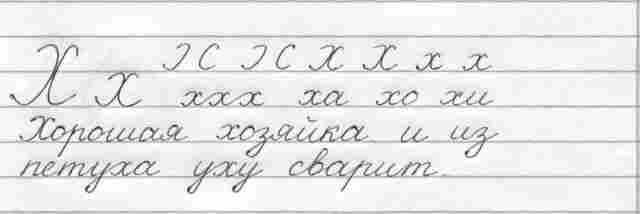 Ɔ С Ɔ С Х Х х х
Х х ххх ха хо хи
Хорошая хозяйка и из
петуха уху сварит.